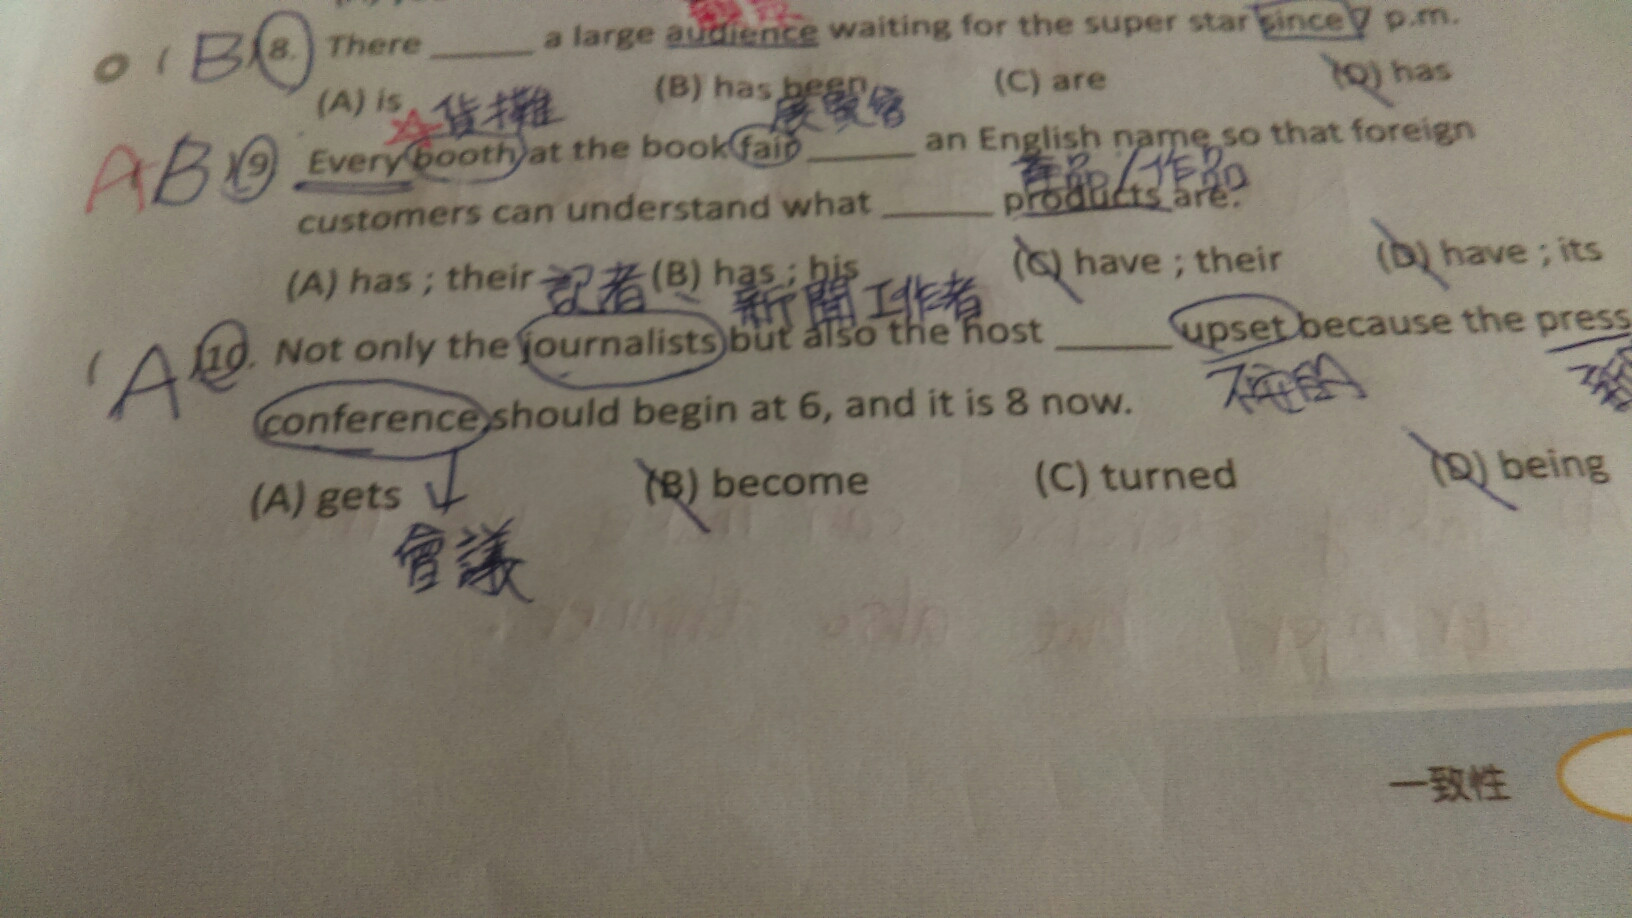 ( B 8. There ______ a large audience waiting for the super star since 7 p.m.
(A) is (B) has been (C) are (D) has
貨攤 展覽會
A B 9 Every booth at the book fair ______ an English name so that foreign
產品/作品
customers can understand what ______ products are.
(A) has ; their (B) has ; his (C) have ; their (D) have ; its
記者 新聞工作者
( A 10. Not only the journalists but also the host ______ upset because the press
conference should begin at 6, and it is 8 now.
(A) gets (B) become (C) turned (D) being
會議
一致性